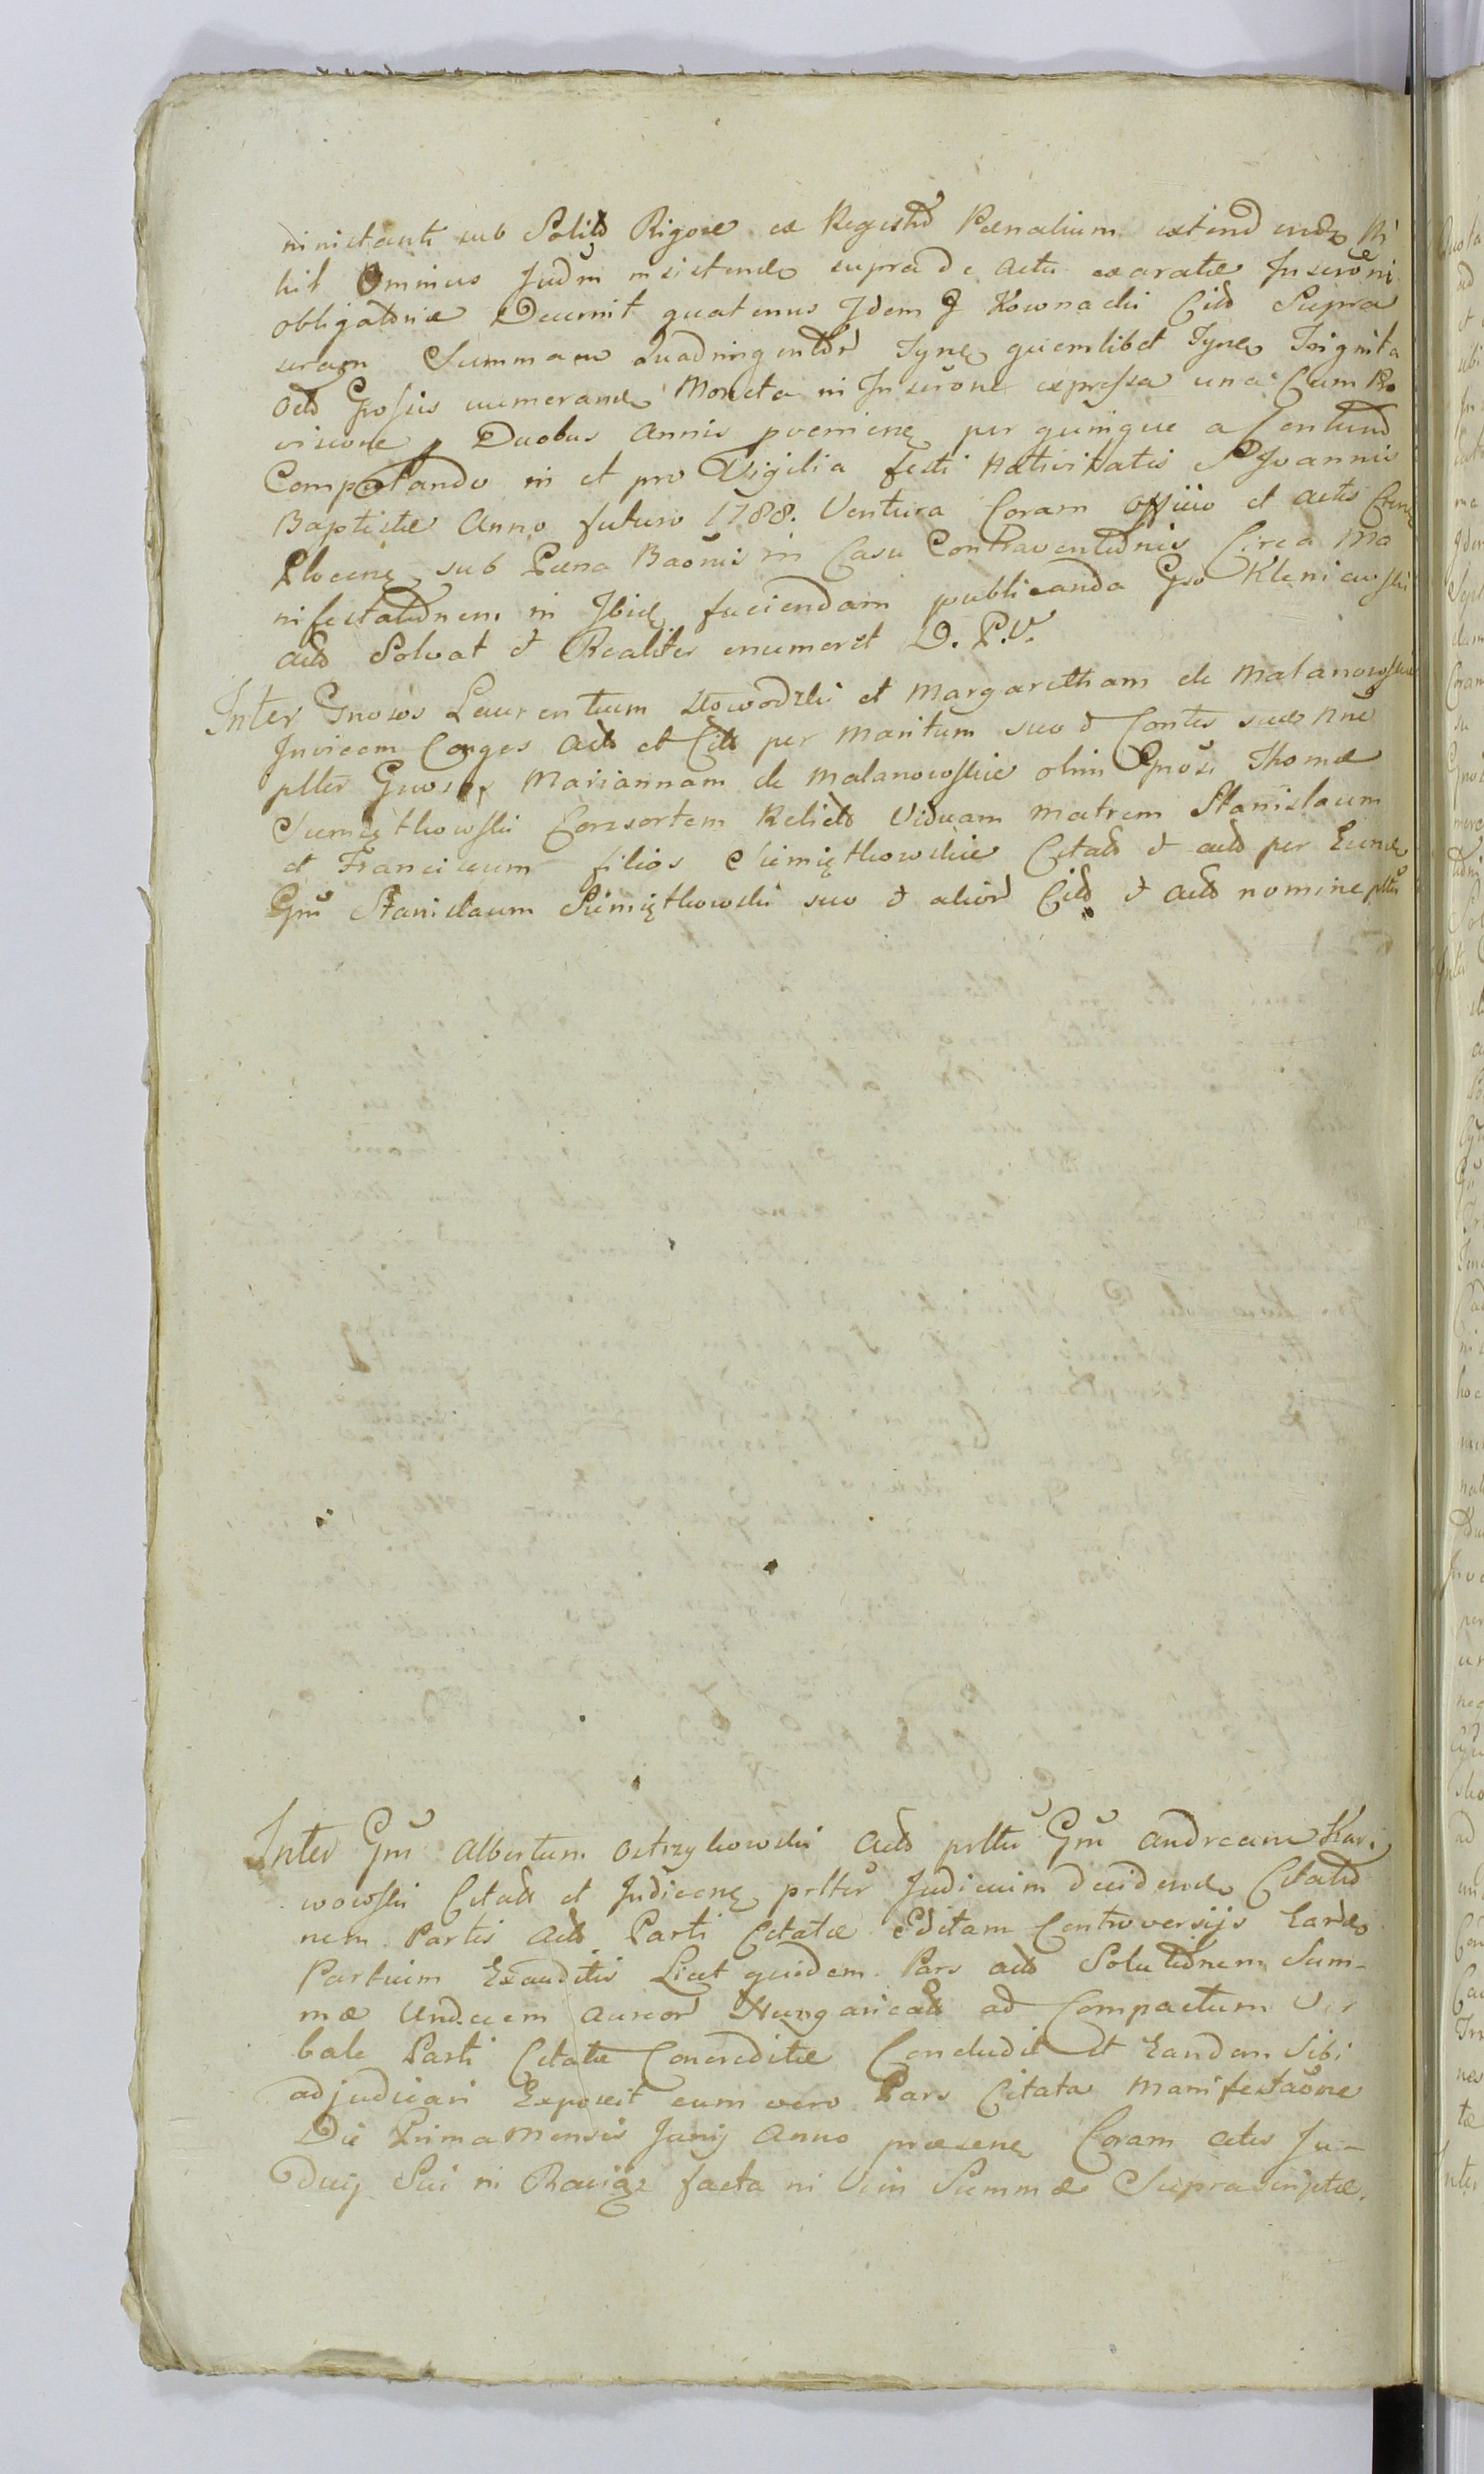 ministranti sub Solito Rigore ex Registro Pœnalium extendende Ni
hil Ominus Judm insistende supra de actu exaratæ Inscrōni
obligatoriæ Decernit quatenus Idem G Kownacki Citto Supra
scrap Summam Quadringentor Tyne quemlibet Tyne Triginta
Octo Grossis numerande Moneta in Inscrōne expressa una Cum Pro
visione p Duobus Annis proemine per quinque a Centum
Computando in et pro Vigilia festi Nativitatis S Joannis
Baptistæ Anno futuro 1788. Ventura Coram Officio et actis
Plocene sub Pæna Baōnis in Casu Contraventionis Circa Ma
nifestationem in Ibid faciendam publicanda Gso Kleniewski
Acto Solvat et Realiter enumeret D. P. V.
Inter Gnosos Laurentium et Margaretham de Malanowskie
Invicem Conges Acto et Citt per Maritum suo et Contis suæ nne
pltter Gnosos Mariannam de Malanowskie olim Gnosi Thomæ
Siemiątkowski Consortem Relicto Viduam Matrem Stanislaum
et Franciscum filios Siemiątkowskie Citatto et acto per Eund
Gm Stanislaum Siemiątkowski suo et alior Citt et acto nomine plttr
Inter Gm Albertum Ostrzykowski Acto prlttr Gm Andream Kar
wowski Citatt et Judicene prlttr Judicium decidende Citatio
nem Partis Acto Parti Citatæ Editam Controversijs Earde
Partium Exauditis Licet quidem Pars acto Solutionem Sum-
mæ Undecem aureor Hungaricatt ad Compactum Ver
bale Parti Citatæ Concreditæ Concludit et Eandem Sibi
adjudicari Exposcit cum vero Pars Citata Manifestaōne
Die Prima Mensis Junij Anno præsene Coram actis Ju-
dicij Sui in facta in Vim Summæ Suprascriptæ.